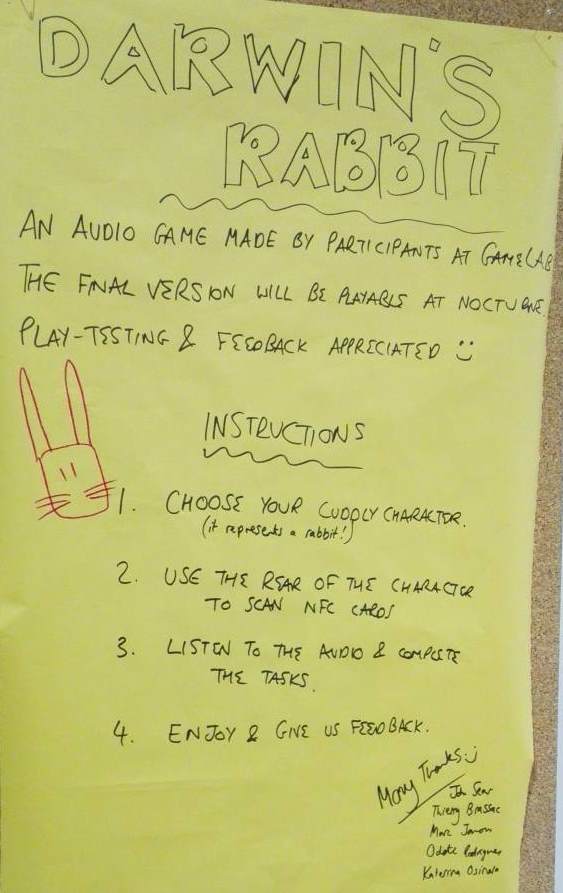 DARWIN'S
RABBIT
AN AUDIO GAME MADE BY PARTICIPANTS AT GAMELAB
THE FINAL VERSION WILL BE PLAYABLE AT NOCTURNE.
PLAY-TESTING & FEEDBACK APPRECIATED :)
INSTRUCTIONS
1. CHOOSE YOUR CUDDLY CHARACTER.
(it represents a rabbit!)
2. USE THE REAR OF THE CHARACTER
TO SCAN NFC CARDS
3. LISTEN TO THE AUDIO & COMPLETE
THE TASKS.
4. ENJOY & GIVE US FEEDBACK.
Many Thanks :)
Thierry Brassac
Marc
Odete Rodrigues
Katerina